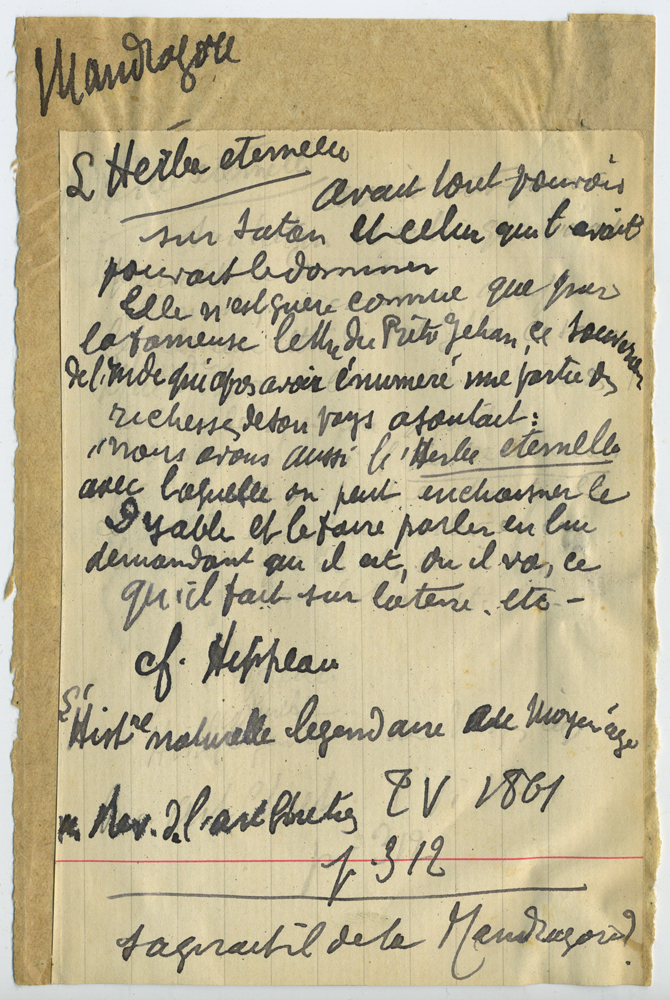 Mandragore
L'Herbe eternelle
avait tout pouvoir
sur Satan et celui qui l'avait
pouvait le dominer
Elle n'est guere connue que par
la fameuse lettre du Prêtre Jehan, ce souverain
de l'Inde qui apres avoir énuméré une partie des
richesses de son pays ajoutait :
"nous avons aussi l'Herbe eternelle
avec laquelle on peut enchainer le
Dyable et le faire parler en lui
demandant qu il est, ou il va, ce
qu'il fait sur la terre. etc -
cf. Hippeau
L'Histre naturelle legendaire de Moyen age
in Rev. de l'art Chretien T V 1861
p. 312
s'agirait il de la Mandragore ?